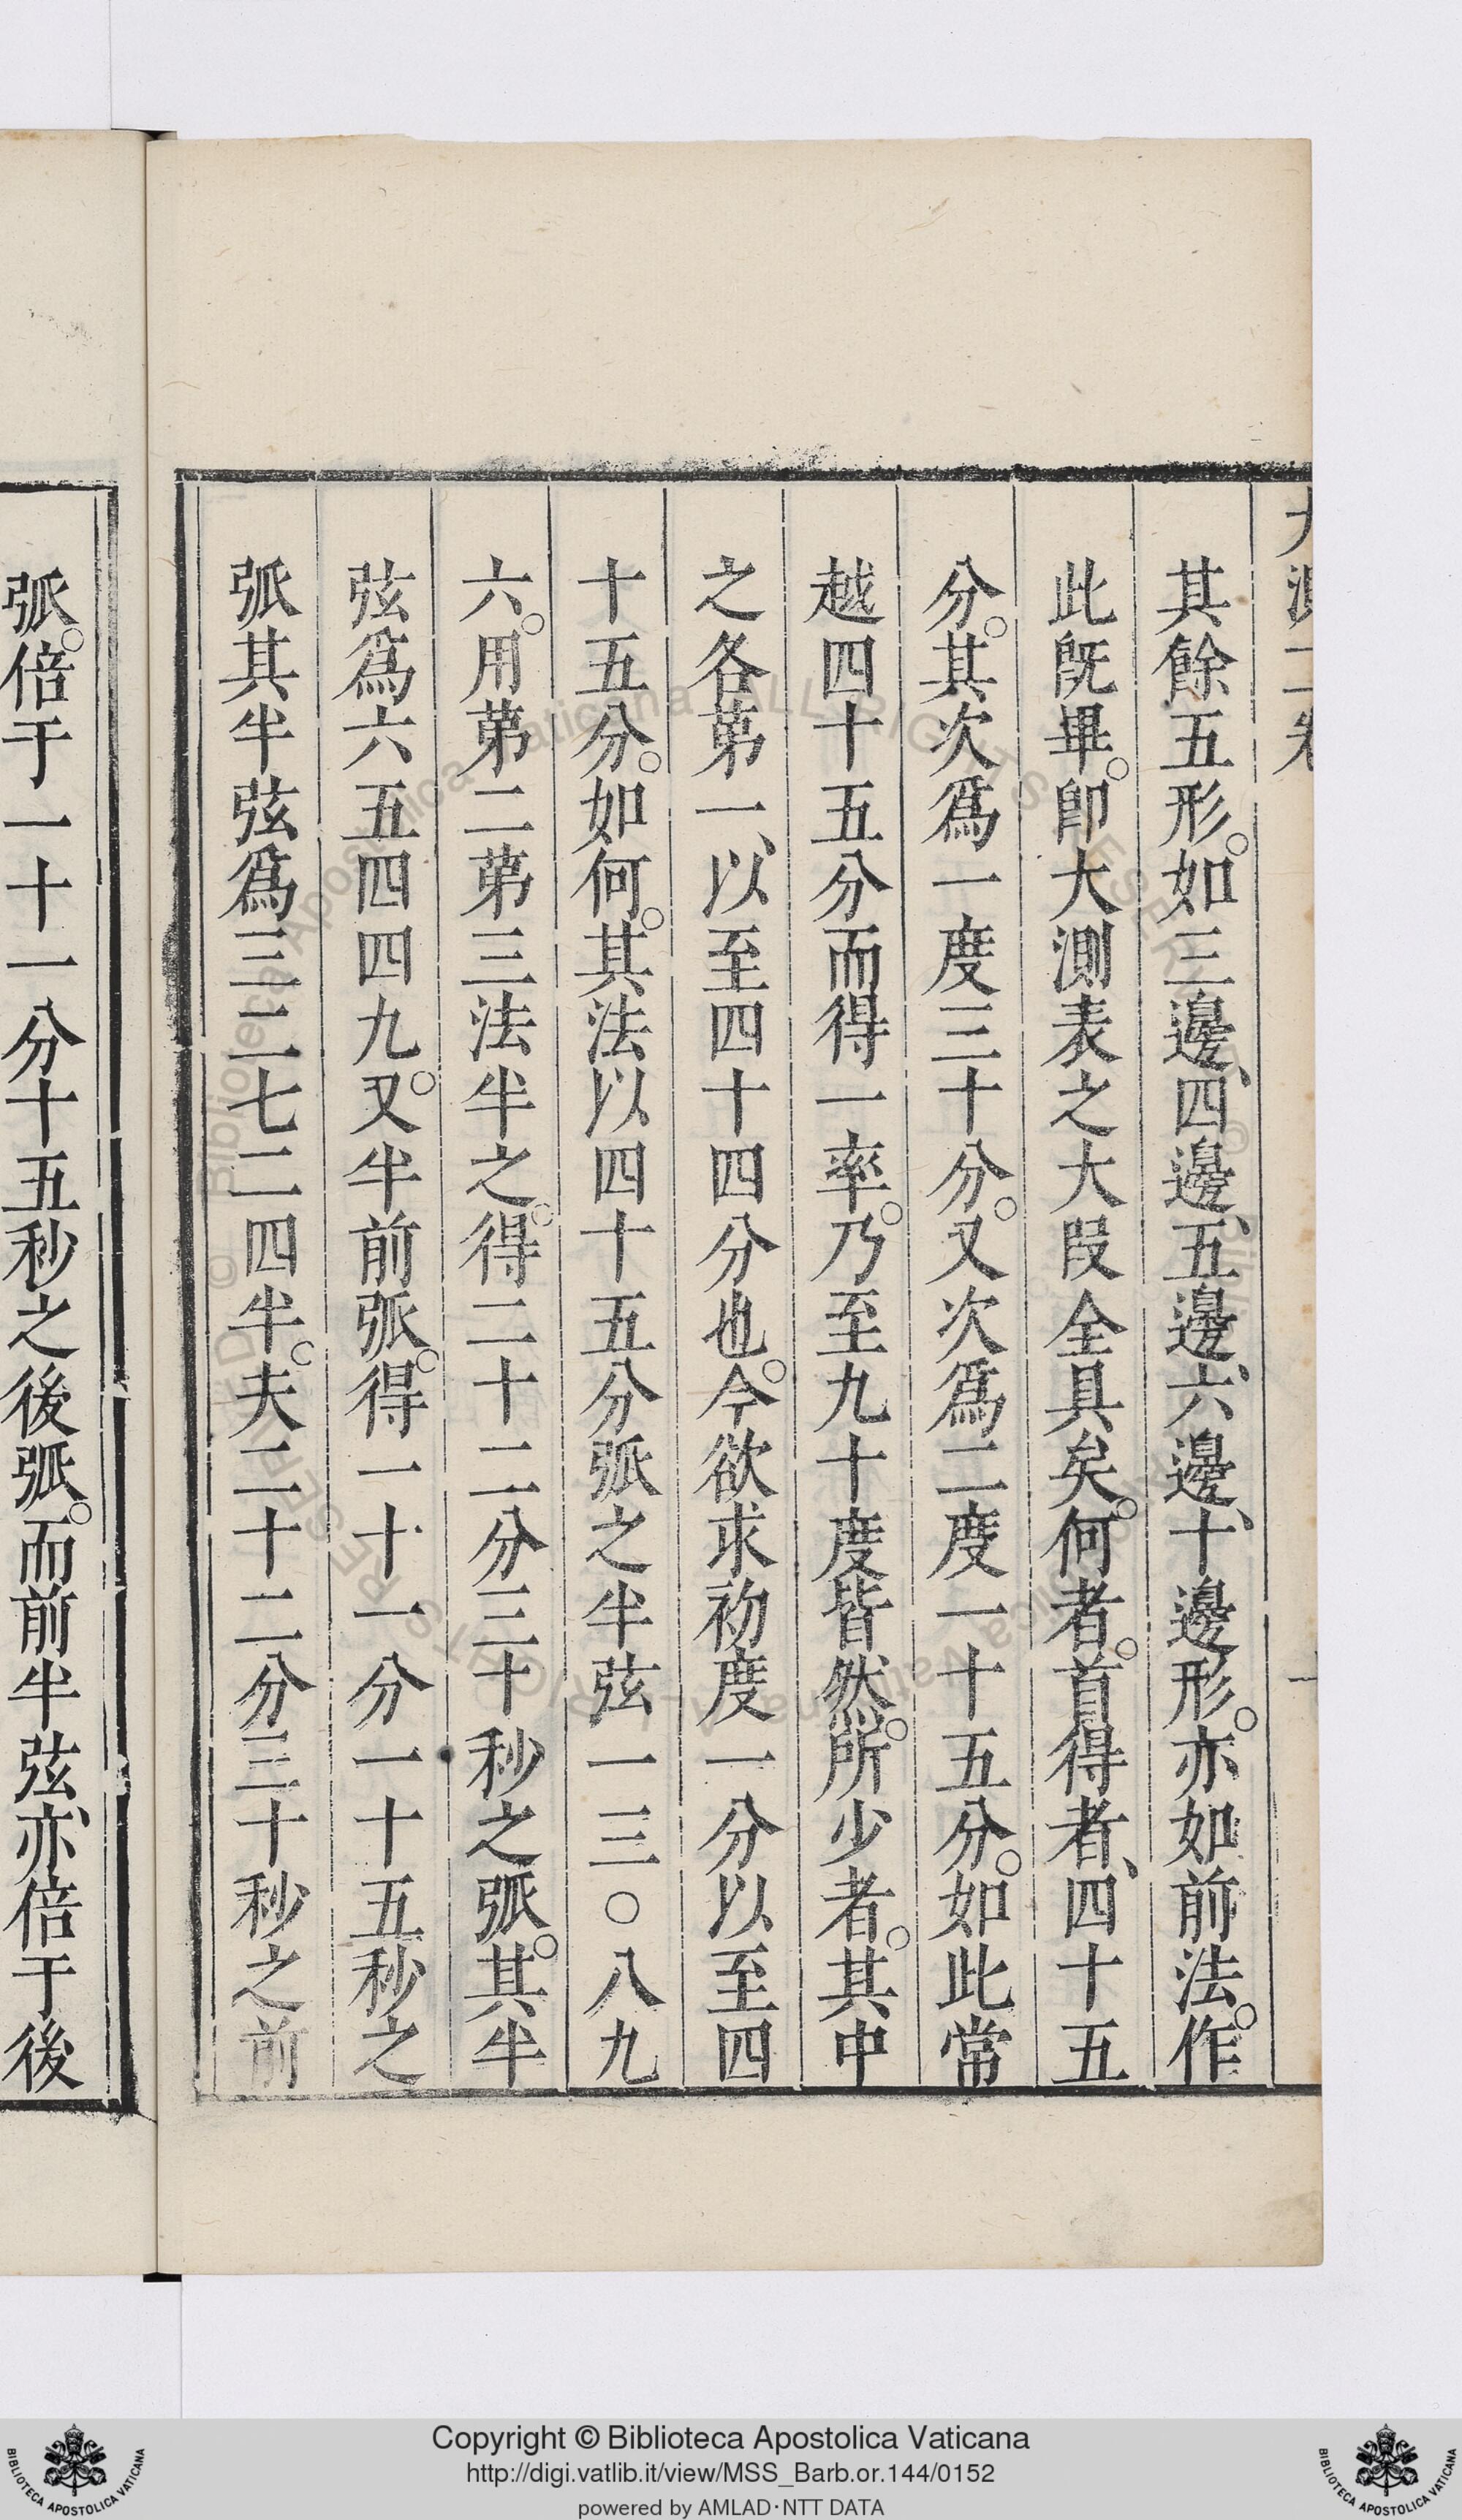 其餘五形。如三邊、四邊、五邊、六邊、十邊形。亦如前法。作
此既畢。卽大測表之大段全具矣。何者。首得者、四十五
分。其次爲一度三十分。又次爲二度一十五分。如此常
越四十五分而得一率。乃至九十度皆然。所少者。其中
之各苐一、以至四十四分也。今欲求初度一分以至四
十五分。如何。其法以四十五分弧之半弦一三〇八九
六。用苐二苐三法半之。得二十二分三十秒之弧。其半
弦爲六五四四九。又半前弧。得一十一分一十五秒之
弧其半弦爲三二七二四半。夫二十二分三十秒之前
弧。倍于一十一分十五秒之後弧。而前半弦、亦倍于後
Copyright © Biblioteca Apostolica Vaticana
http://digi.vatlib.it/view/MSS_Barb.or.144/0152
powered by AMLAD·NTT DATA
BIBLIOTECA APOSTOLICA VATICANA
BIBLIOTECA APOSTOLICA VATICANA